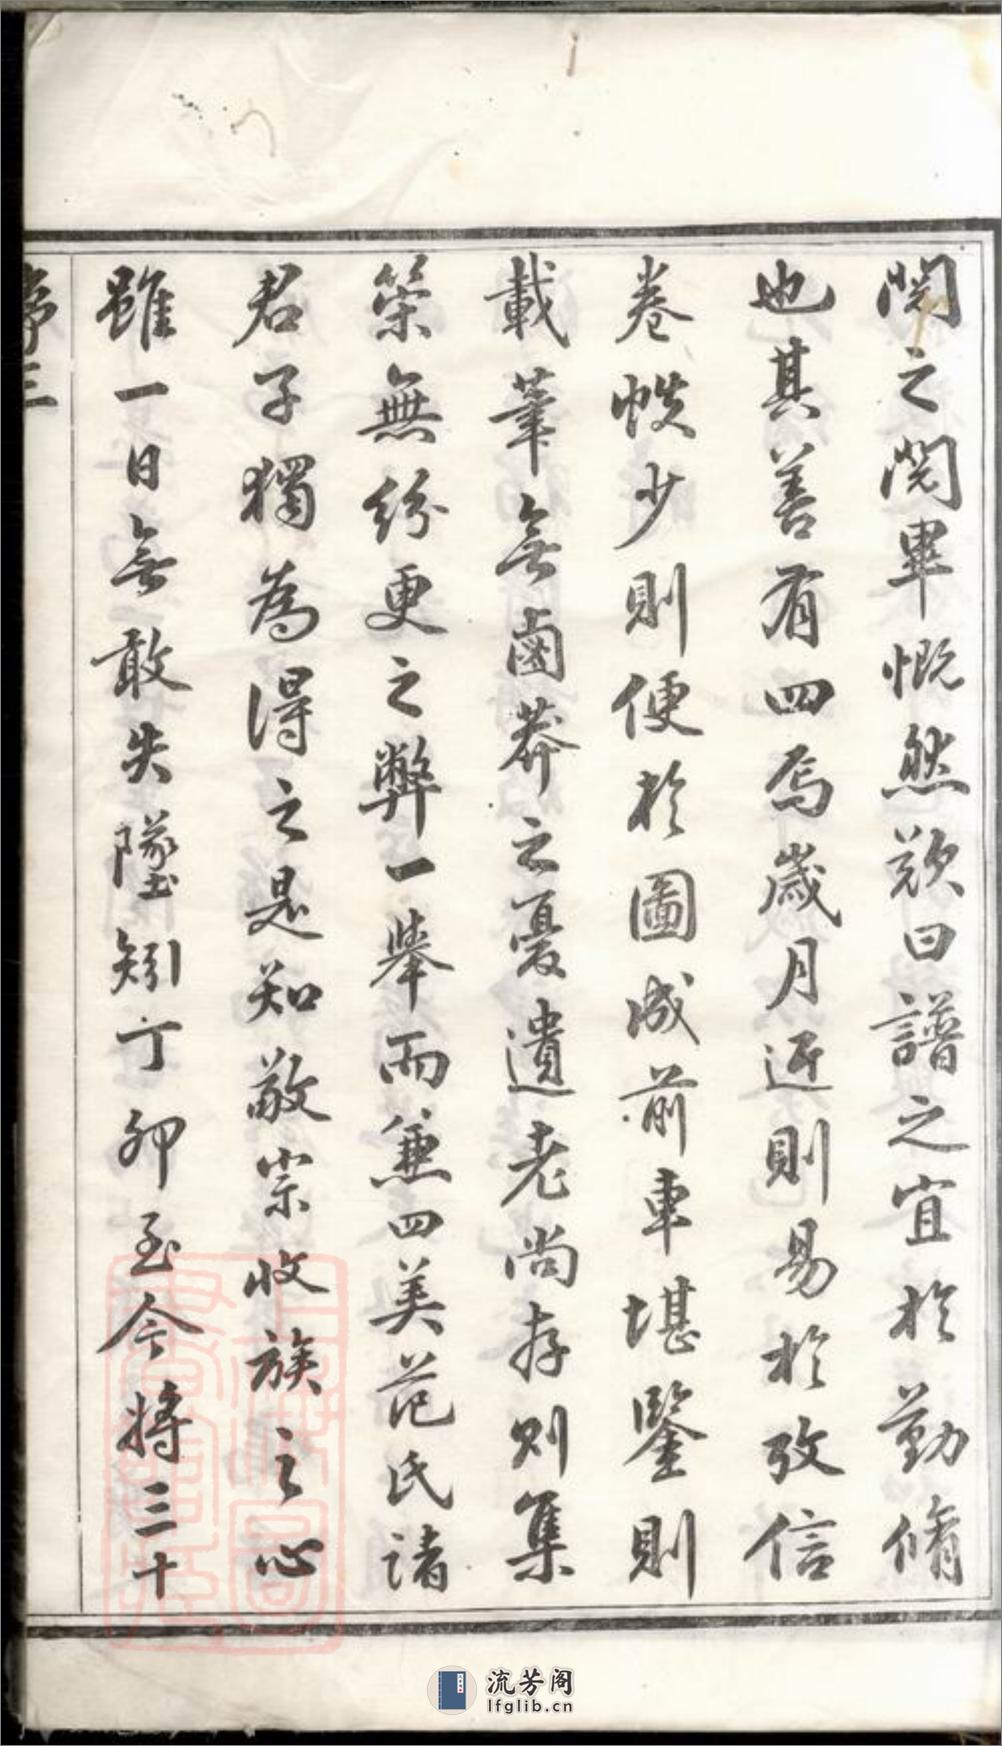 閱之閱畢慨然歎曰譜之宜於勤脩
也其善有四焉歲月近則易於攷信
卷帙少則便於圖成前車堪鑒則
載筆無鹵莽之憂遺老尚存則集
榮無紛更之弊一舉而兼四美范氏諸
君子獨為得之是知敬宗收族之心
雖一日無敢失墜矧丁卯至今將三十
序三
流芳阁
lfglib.cn